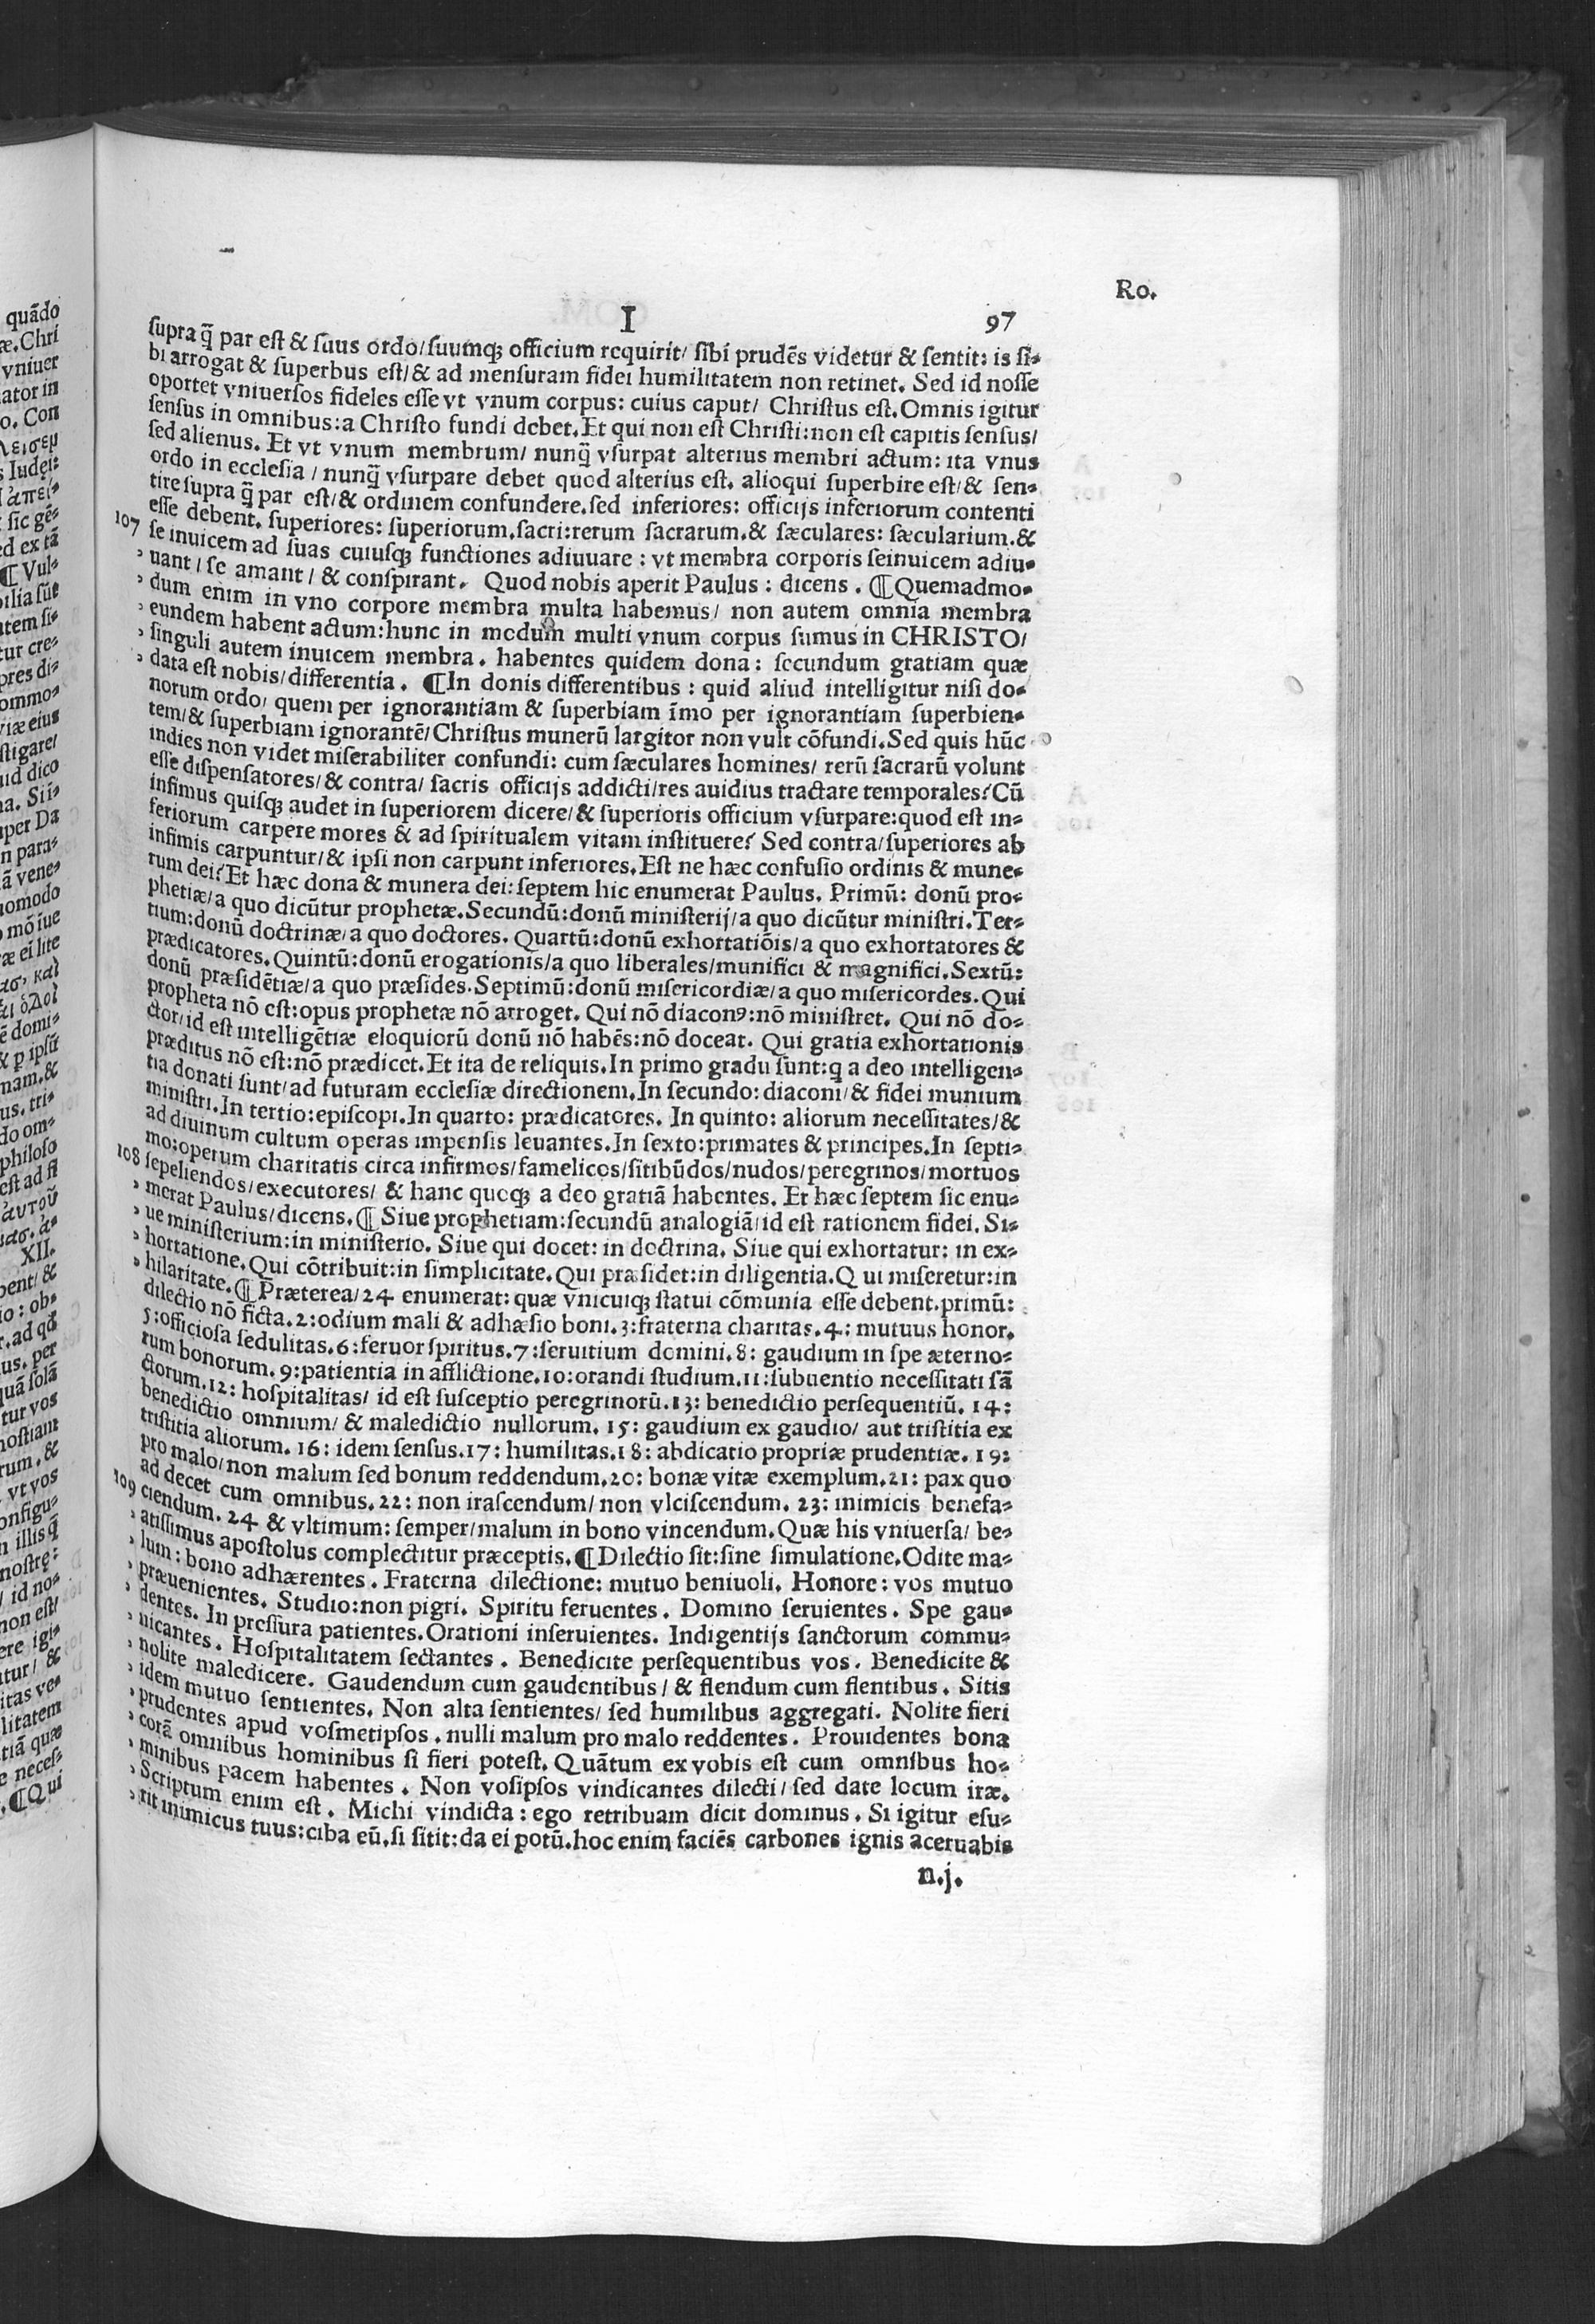 Ro.
I
97
supra q̃ par est & suus ordo/ suumq; officium requirit/ sibi prudẽs videtur & sentit: is si-
bi arrogat & superbus est/ & ad mensuram fidei humilitatem non retinet. Sed id nosse
oportet vniuersos fideles esse vt vnum corpus: cuius caput/ Christus est. Omnis igitur
sensus in omnibus: a Christo fundi debet. Et qui non est Christi: non est capitis sensus/
sed alienus. Et vt vnum membrum/ nunq̃ vsurpat alterius membri actum: ita vnus
ordo in ecclesia/ nunq̃ vsurpare debet quod alterius est. alioqui superbire est/ & sen-
tire supra q̃ par est/ & ordinem confundere. sed inferiores: officijs inferiorum contenti
esse debent. superiores: superiorum. sacri: rerum sacrarum. & sæculares: sæcularium. &
107 se inuicem ad suas cuiusq; functiones adiuuare: vt membra corporis seinuicem adiu-
uant/ se amant/ & conspirant. Quod nobis aperit Paulus: dicens. ¶ Quemadmo-
dum enim in vno corpore membra multa habemus/ non autem omnia membra
eundem habent actum: hunc in modum multi vnum corpus sumus in CHRISTO/
singuli autem inuicem membra. habentes quidem dona: secundum gratiam quæ
data est nobis/ differentia. ¶ In donis differentibus: quid aliud intelligitur nisi do-
norum ordo/ quem per ignorantiam & superbiam ĩmo per ignorantiam superbien-
tem/ & superbiam ignorantẽ/ Christus munerũ largitor non vult cõfundi. Sed quis hũc
indies non videt miserabiliter confundi: cum sæculares homines/ rerũ sacrarũ volunt
esse dispensatores/ & contra/ sacris officijs addicti/ res auidius tractare temporales? Cũ
infimus quisq; audet in superiorem dicere/ & superioris officium vsurpare: quod est in-
feriorum carpere mores & ad spiritualem vitam instituere? Sed contra/ superiores ab
infimis carpuntur/ & ipsi non carpunt inferiores. Est ne hæc confusio ordinis & mune-
rum dei? Et hæc dona & munera dei: septem hic enumerat Paulus. Primũ: donũ pro-
phetiæ/ a quo dicũtur prophetæ. Secundũ: donũ ministerij/ a quo dicũtur ministri. Ter-
tium: donũ doctrinæ/ a quo doctores. Quartũ: donũ exhortatiõis/ a quo exhortatores &
prædicatores. Quintũ: donũ erogationis/ a quo liberales/ munifici & magnifici. Sextũ:
donũ præsidẽtiæ/ a quo præsides. Septimũ: donũ misericordiæ/ a quo misericordes. Qui
propheta nõ est: opus prophetæ nõ arroget. Qui nõ diaconꝰ: nõ ministret. Qui nõ do-
ctor/ id est intelligẽtiæ eloquiorũ donũ nõ habẽs: nõ doceat. Qui gratia exhortationis
præditus nõ est: nõ prædicet. Et ita de reliquis. In primo gradu sunt: q a deo intelligen-
tia donati sunt/ ad futuram ecclesiæ directionem. In secundo: diaconi/ & fidei munium
ministri. In tertio: episcopi. In quarto: prædicatores. In quinto: aliorum necessitates/ &
ad diuinum cultum operas impensis leuantes. In sexto: primates & principes. In septi-
mo: operum charitatis circa infirmos/ famelicos/ sitibũdos/ nudos/ peregrinos/ mortuos
108 sepeliendos/ executores/ & hanc quoq; a deo gratiã habentes. Et hæc septem sic enu-
merat Paulus/ dicens. ¶ Siue prophetiam: secundũ analogiã/ id est rationem fidei. Si-
ue ministerium: in ministerio. Siue qui docet: in doctrina. Siue qui exhortatur: in ex-
hortatione. Qui cõtribuit: in simplicitate. Qui præsidet: in diligentia. Q ui miseretur: in
hilaritate. ¶ Præterea/ 24 enumerat: quæ vnicuiq; statui cõmunia esse debent. primũ:
dilectio nõ ficta. 2: odium mali & adhæsio boni. 3: fraterna charitas. 4: mutuus honor.
5: officiosa sedulitas. 6: feruor spiritus. 7: seruitium domini. 8: gaudium in spe æterno-
rum bonorum. 9: patientia in afflictione. 10: orandi studium. 11: subuentio necessitati sã
ctorum. 12: hospitalitas/ id est susceptio peregrinorũ. 13: benedictio persequentiũ. 14:
benedictio omnium/ & maledictio nullorum. 15: gaudium ex gaudio/ aut tristitia ex
tristitia aliorum. 16: idem sensus. 17: humilitas. 18: abdicatio propriæ prudentiæ. 19:
pro malo/ non malum sed bonum reddendum. 20: bonæ vitæ exemplum. 21: pax quo
ad decet cum omnibus. 22: non irascendum/ non vlciscendum. 23: inimicis benefa-
109 ciendum. 24 & vltimum: semper/ malum in bono vincendum. Quæ his vniuersa/ be-
atissimus apostolus complectitur præceptis. ¶ Dilectio sit: sine simulatione. Odite ma-
lum: bono adhærentes. Fraterna dilectione: mutuo beniuoli. Honore: vos mutuo
præuenientes. Studio: non pigri. Spiritu feruentes. Domino seruientes. Spe gau-
dentes. In pressura patientes. Orationi inseruientes. Indigentijs sanctorum commu-
nicantes. Hospitalitatem sectantes. Benedicite persequentibus vos. Benedicite &
nolite maledicere. Gaudendum cum gaudentibus/ & flendum cum flentibus. Sitis
idem mutuo sentientes. Non alta sentientes/ sed humilibus aggregati. Nolite fieri
prudentes apud vosmetipsos. nulli malum pro malo reddentes. Prouidentes bona
corã omnibus hominibus si fieri potest. Quãtum ex vobis est cum omnibus ho-
minibus pacem habentes. Non vosipsos vindicantes dilecti/ sed date locum iræ.
Scriptum enim est. Michi vindicta: ego retribuam dicit dominus. Si igitur esu-
rit inimicus tuus: ciba eũ. si sitit: da ei potũ. hoc enim faciẽs carbones ignis aceruabis
n.j.